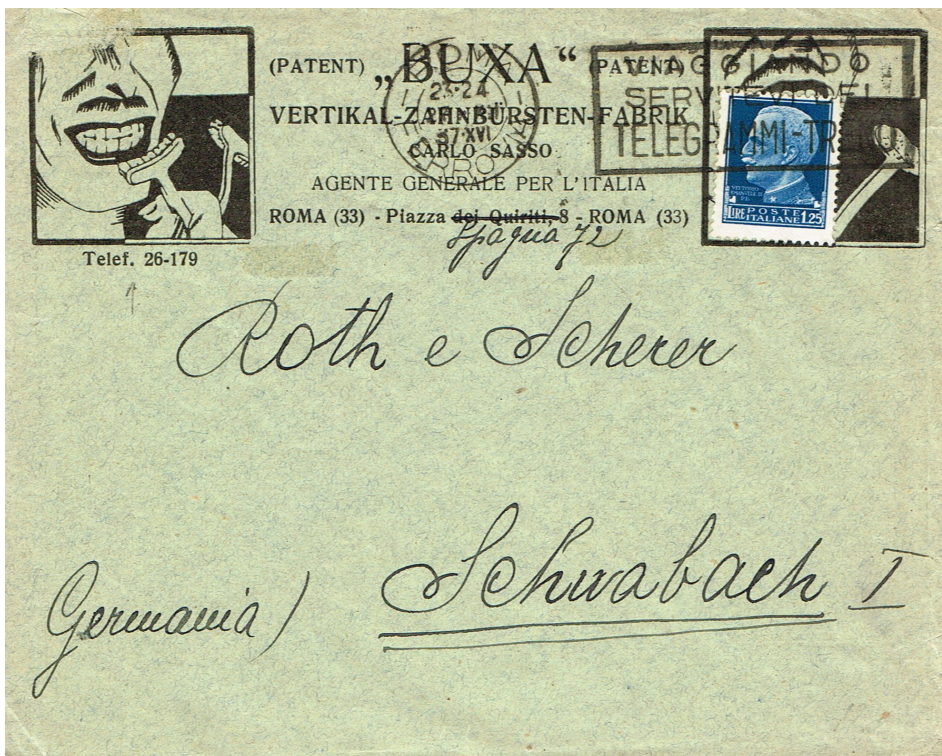 (PATENT) „BUXA“ (PATENT)
VERTIKAL-ZAHNBÜRSTEN-FABRIK
CARLO SASSO
AGENTE GENERALE PER L'ITALIA
ROMA (33) - Piazza dei Quiriti, 8 - ROMA (33)
Spagna 72
Telef. 26-179
23-24
37·XVI
VIAGGIANDO
SERVITEVI DEI
TELEGRAMMI-TRENO
VITTORIO
EMANUELE III
POSTE
LIRE ITALIANE 1.25
Roth e Scherer
Schwabach I
Germania)